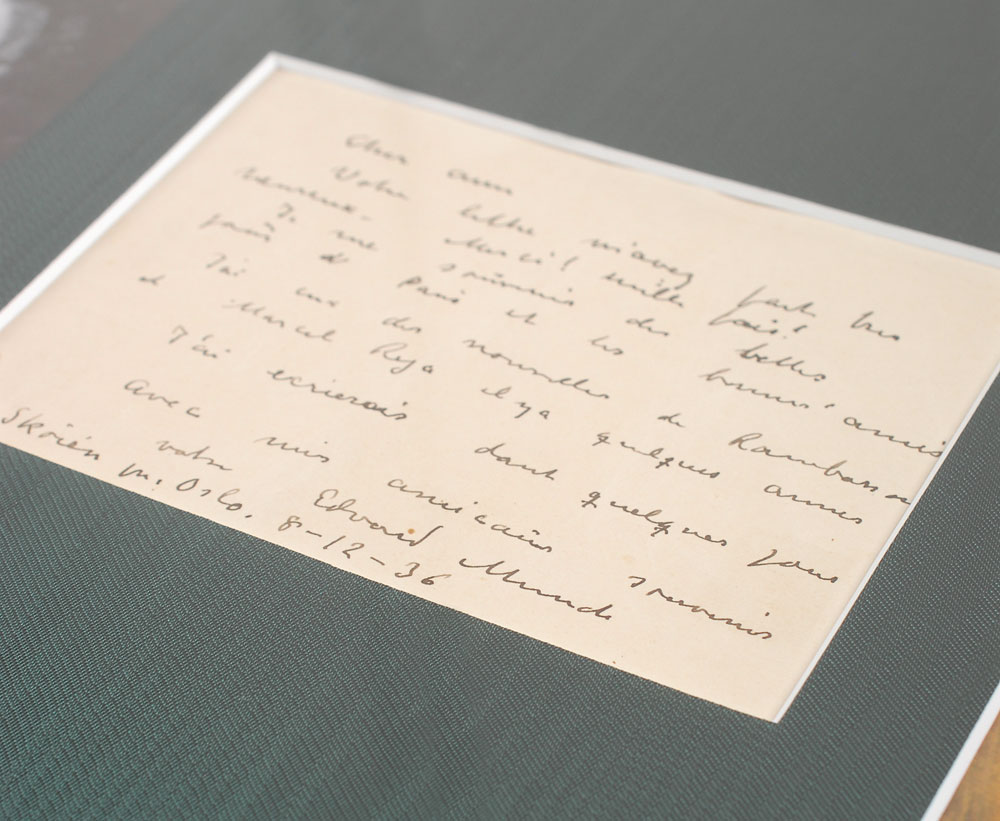 Cher ami
Votre lettre m'avez fait bus
heureux. – Merci! mille fois!
Je me souvenis des belles
jours de Paris et les bonnes amis
J'ai eux des nouvelles de Rambosson
et Marcel Reja il ya quelques annes
J'ai ecrierais dant quelques jours
avec mis amicains souvenis
votre Edvard Munch
Skøien pr. Oslo. 8-12-36